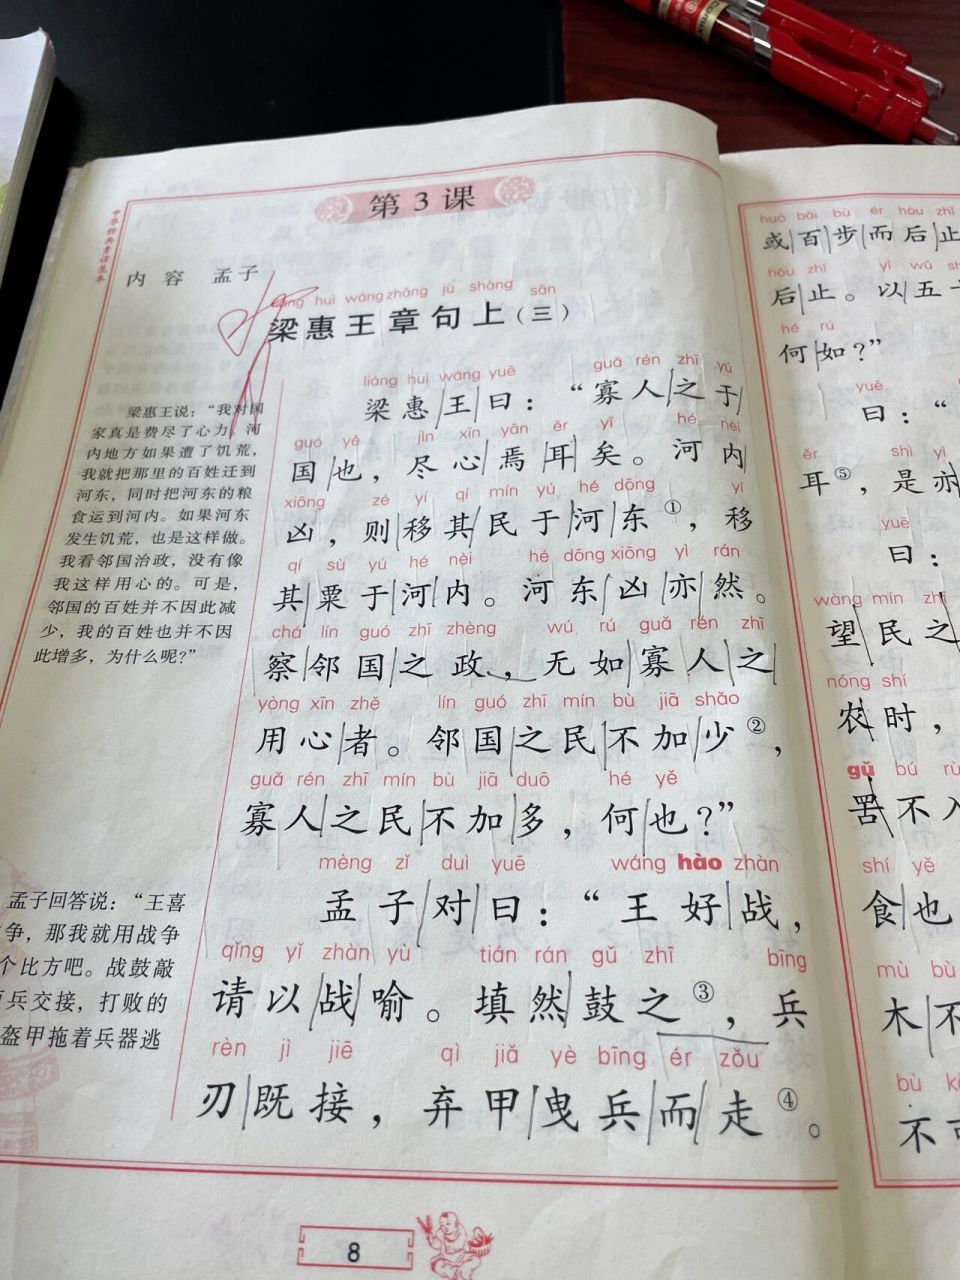 中华经典素读范本
第3课
内容 孟子
huì wáng zhāng jù shàng sān
梁惠王章句上（三）
liáng huì wáng yuē guǎ rén zhī yú
梁惠王曰：“寡人之于
guó yě jìn xīn yān ěr yǐ hé nèi
国也，尽心焉耳矣。河内
xiōng zé yí qí mín yú hé dōng yí
凶，则移其民于河东①，移
qí sù yú hé nèi hé dōng xiōng yì rán
其粟于河内。河东凶亦然。
chá lín guó zhī zhèng wú rú guǎ rén zhī
察邻国之政，无如寡人之
yòng xīn zhě lín guó zhī mín bù jiā shǎo
用心者。邻国之民不加少②，
guǎ rén zhī mín bù jiā duō hé yě
寡人之民不加多，何也？”
mèng zǐ duì yuē wáng hào zhàn
孟子对曰：“王好战，
qǐng yǐ zhàn yù tián rán gǔ zhī bīng
请以战喻。填然鼓之③，兵
rèn jì jiē qì jiǎ yè bīng ér zǒu
刃既接，弃甲曳兵而走④。
梁惠王说：“我对国
家真是费尽了心力。河
内地方如果遭了饥荒，
我就把那里的百姓迁到
河东，同时把河东的粮
食运到河内。如果河东
发生饥荒，也是这样做。
我看邻国治政，没有像
我这样用心的。可是，
邻国的百姓并不因此减
少，我的百姓也并不因
此增多，为什么呢？”
孟子回答说：“王喜
争，那我就用战争
个比方吧。战鼓敲
兵交接，打败的
盔甲拖着兵器逃
8
huò bǎi bù ér hòu zhǐ
或百步而后止
hòu zhǐ yǐ wǔ shí
后止。以五十
hé rú
何如？”
yuē
曰：“
ěr shì yì
耳⑤，是亦
yuē
曰：
wàng mín zhī
望民之
nóng shí
农时，
gǔ bú rù
罟不入
shí yě
食也
mù bù
木不
bù kě
不可